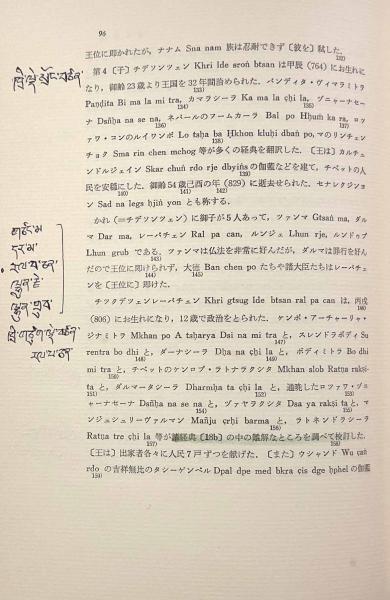 96
王位に即かれたが，ナナム Sna nam 族は忍耐できず〔彼を〕弑した。
132)
第4〔子〕チデソンツェン Khri lde sroṅ btsan は甲辰（764）にお生れに
なり，御齢23歳より王国を32年間治められた。パンディタ・ヴィマラミトラ
133)
Paṇḍita Bi ma la mi tra, カマラシーラ Ka ma la çhi la, ヅニャーナセー
134) 135) 136)
ナ Dsñha na se na, ネパールのフームカーラ Bal po Hḥuṁ ka ra, ロツ
137)
ァワ・コンのルイワンポ Lo tsha ba Ḥkhon kluḥi dbaṅ po, マのリンチェン
138)
チョク Sma rin chen mchog 等が多くの経典を翻訳した。〔王は〕カルチュ
139)
ンドルジェイン Skar chuṅ rdo rje dbyiṅs の伽藍などを建て，チベットの人
民を安穏にした。御齢54歳己酉の年（829）に逝去せられた。セナレクジヨ
140) 141) 142)
ン Sad na legs ḥjiṅ yon とも称する。
かれ（＝チデソンツェン）に御子が5人あって，ツァンマ Gtsaṅ ma, ダル
マ Dar ma, レーパチェン Ral pa can, ルンジェ Lhun rje, ルンドゥプ
Lhun grub である。ツァンマは仏法を非常に好んだが，ダルマは罪行を好ん
143) 144)
だので王位に即けられず，大徳 Ban chen po たちや諸大臣たちはレーパチェ
145)
ンを〔王位に〕即けた。
チツクデツェンレーパチェン Khri gtsug lde btsan ral pa can は，丙戌
（806）にお生れになり，12歳で政治をとられた。ケンポ・アーチャーリャ・
146)
ジナミトラ Mkhan po A tsharya Dsi na mi tra と，スレンドラボディ Su
147)
rentra bo dhi と，ダーナシーラ Dha na çhi la と，ボディミトラ Bo dhi
148) 149)
mi tra と，チベットのケンロプ・ラトナラクシタ Mkhan slob Ratṇa rakṣi-
150)
ta と，ダルマターシーラ Dharmḥa ta çhi la と，通暁したロツァワ・ヅニ
151) 152)
ャーナセーナ Dsñha na se na と，ヅァヤラクシタ Dsa ya rakṣi ta と，マ
153) 154)
ンジュシュリーヴァルマン Mañju çrḥi barma と，ラトネンドラシーラ
155) 156)
Ratṇa tre çhi la 等が諸経典〔18b〕の中の難解なところを調べて校訂した。
157) 158)
〔王は〕出家者各々に人民7戸ずつを献げた。〔また〕ウシャンド Wu çaṅ
rdo の吉祥無比のタシーゲンペル Dpal dpe med bkra çis dge ḥphel の伽藍
159)
ཁྲི་ལྡེ་སྲོང་བཙན་
གཙང་མ་
དར་མ་
རལ་པ་ཅན་
ལྷུན་རྗེ་
ལྷུན་གྲུབ་
ཁྲི་གཙུག་ལྡེ་བཙན་
རལ་པ་ཅན་